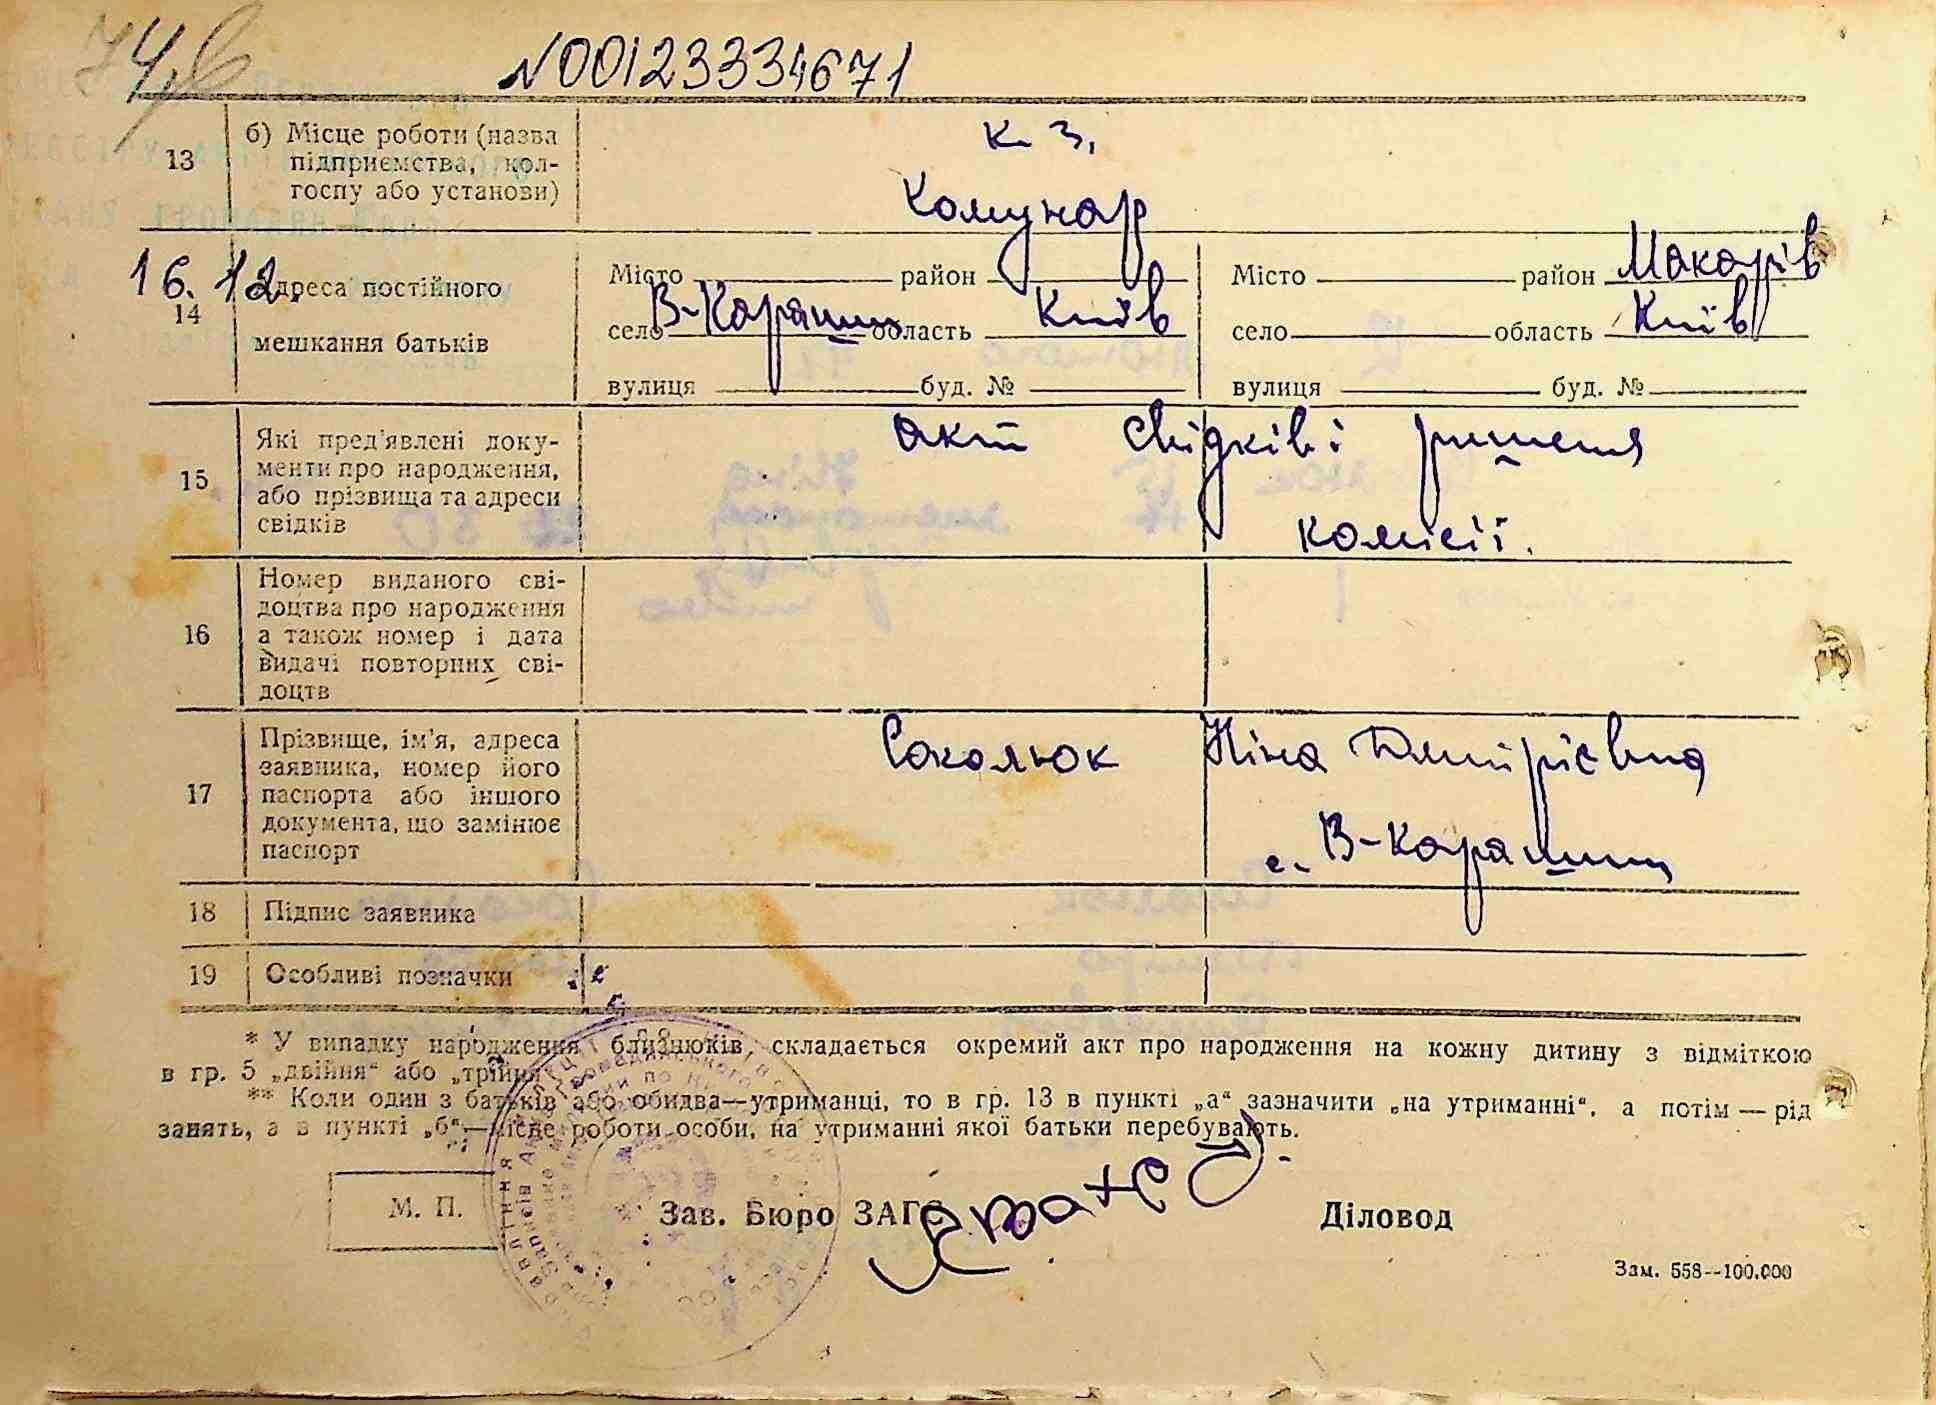 74
N001233334671
13
б) Місце роботи (назва
підприємства, кол-
госпу або установи)
к. з.
Комунар
16. 12.
14
Адреса постійного
мешкання батьків
Місто район
село В-Карашин область Київ
вулиця буд. №
Місто район Макарів
село область Київ
вулиця буд. №
15
Які пред'явлені доку-
менти про народження,
або прізвища та адреси
свідків
акт свідків і рішення
комісії.
16
Номер виданого сві-
доцтва про народження
а також номер і дата
видачі повторних сві-
доцтв
17
Прізвище, ім'я, адреса
заявника, номер його
паспорта або іншого
документа, що замінює
паспорт
Соколюк Ніна Дмитрієвна
с. В-Карашин
18 Підпис заявника
19 Особливі позначки
* У випадку народження близнюків, складається окремий акт про народження на кожну дитину з відміткою
в гр. 5 „двійня“ або „трійня“
** Коли один з батьків або обидва—утриманці, то в гр. 13 в пункті „а“ зазначити „на утриманні“, а потім — рід
занять, а в пункті „б“—місце роботи особи, на утриманні якої батьки перебувають.
М. П.
Зав. Бюро ЗАГС
Діловод
Зам. 558--100.000